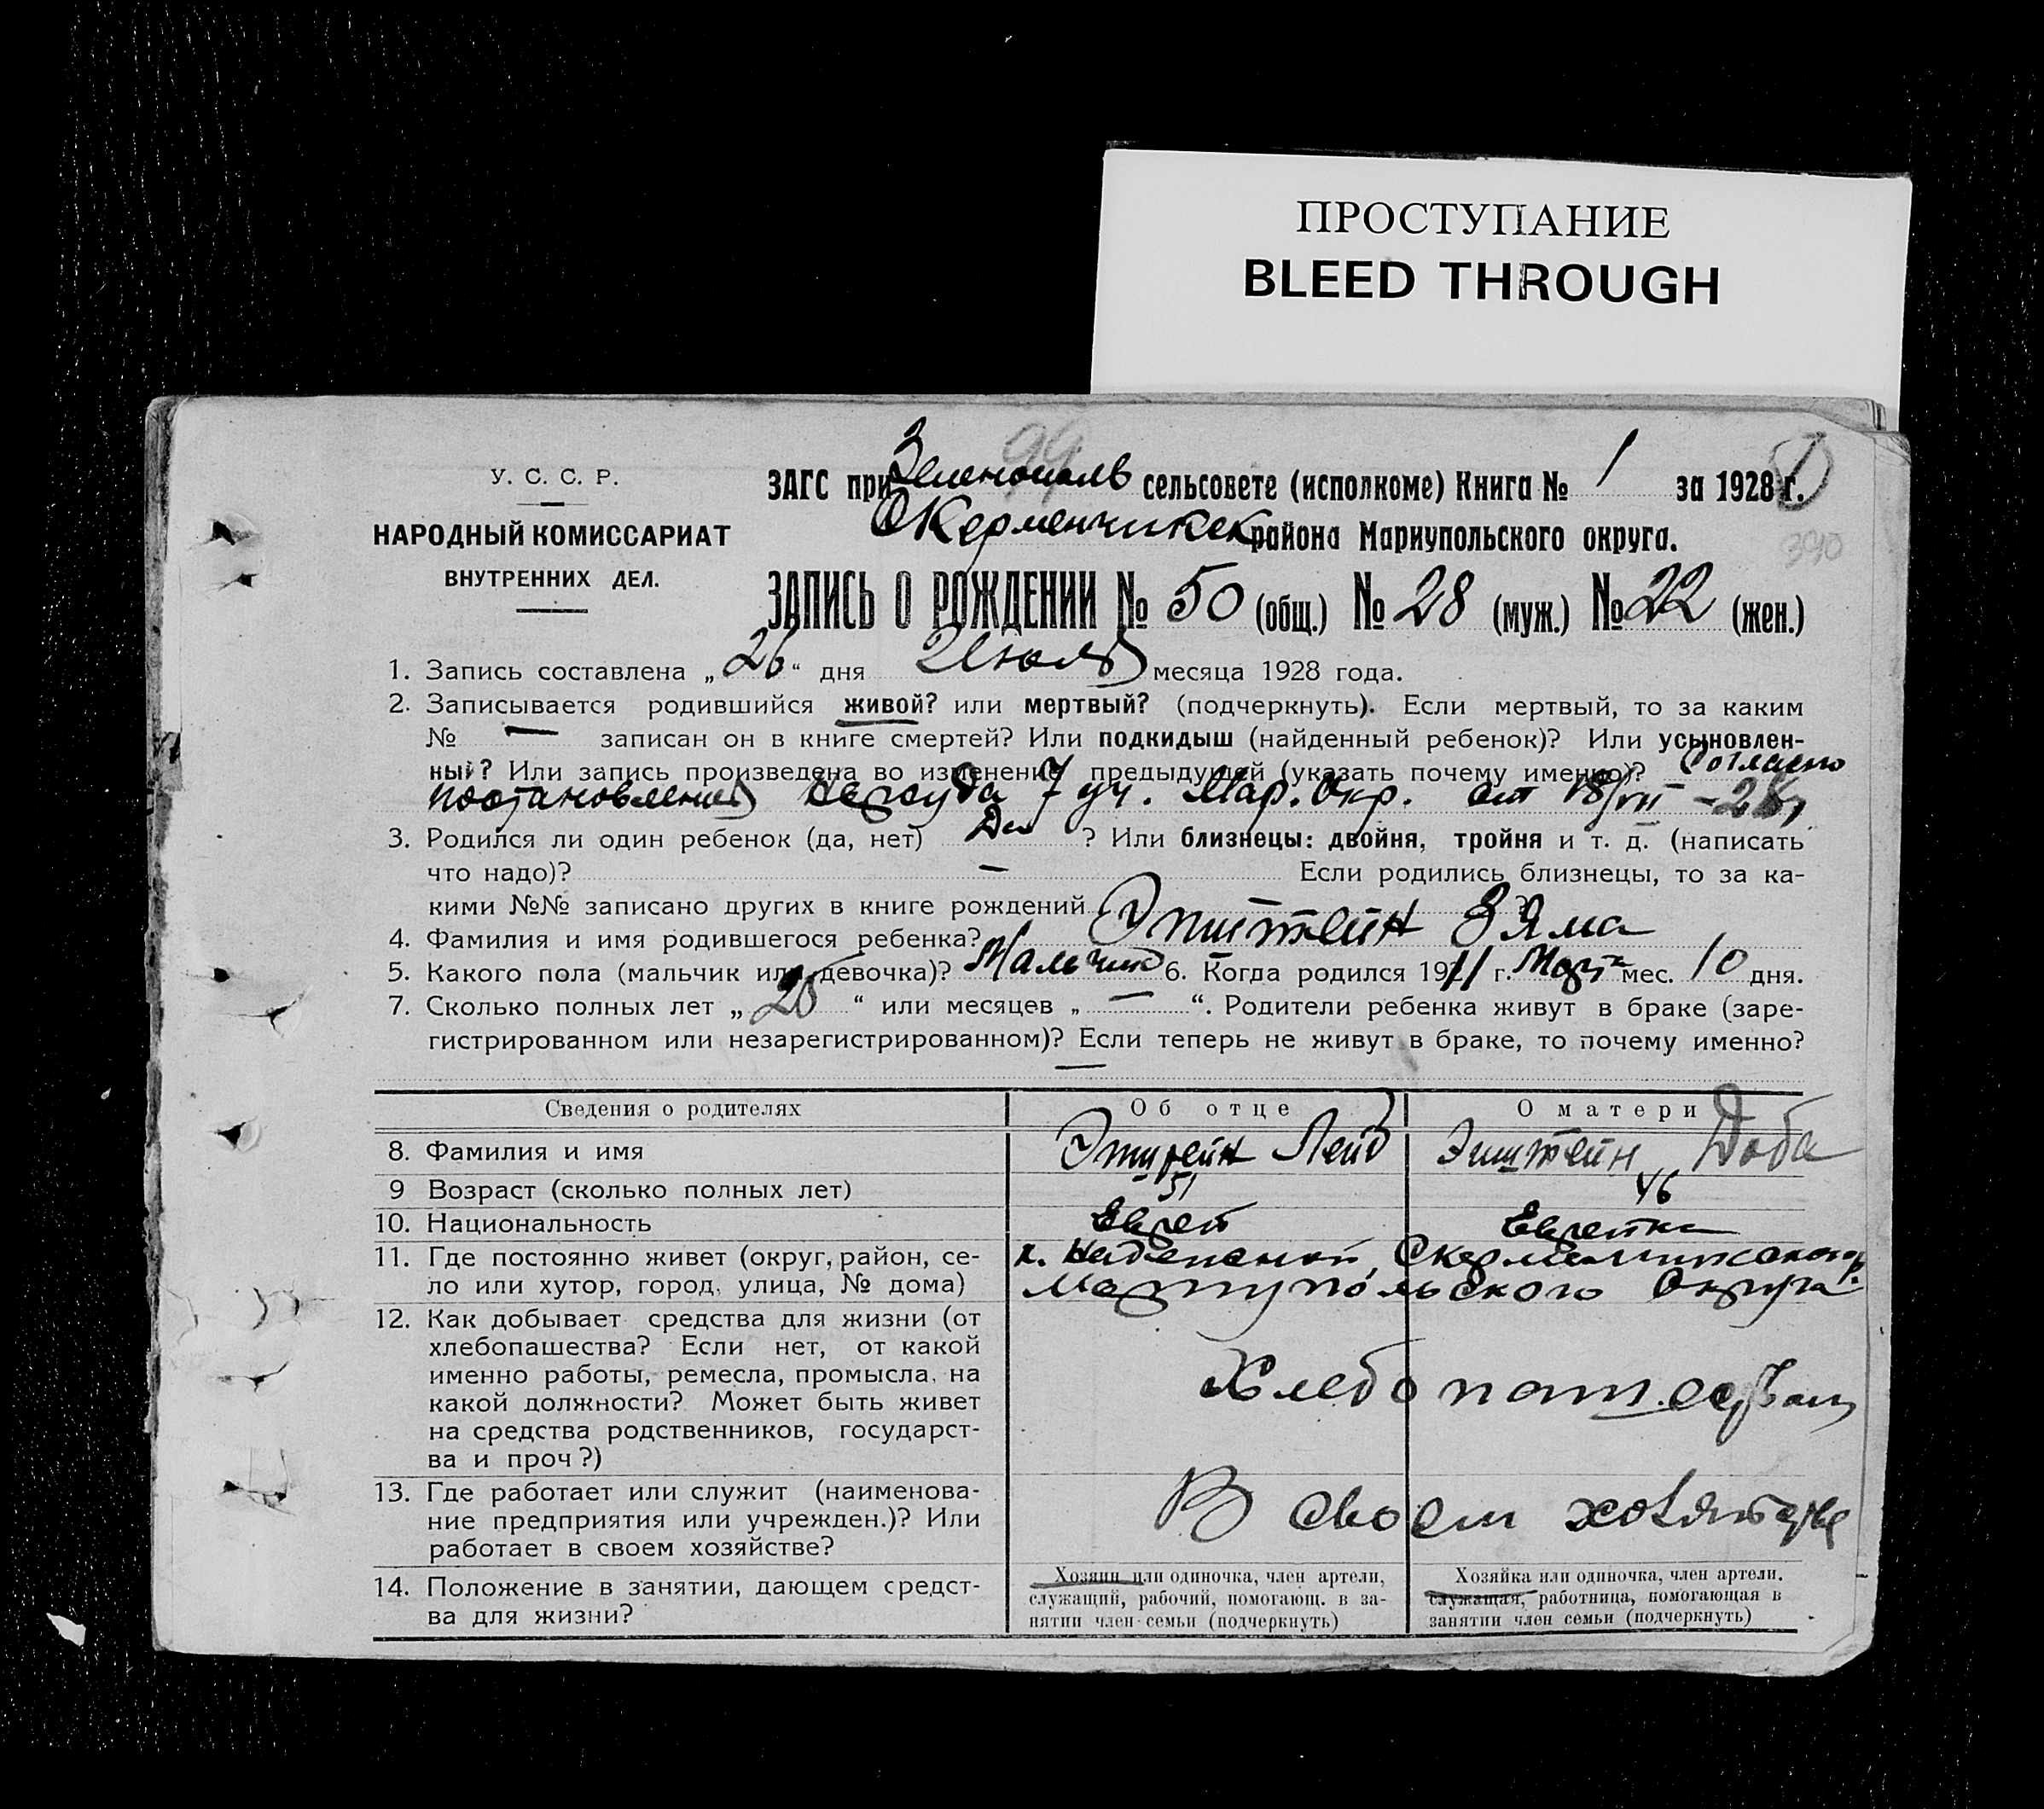 ПРОСТУПАНИЕ
BLEED THROUGH
99
У. С. С. Р.
НАРОДНЫЙ КОМИССАРИАТ
ВНУТРЕННИХ ДЕЛ.
ЗАГС при Зеленополь сельсовете (исполкоме) Книга № 1 за 1928 г.
района Мариупольского округа.
390
ЗАПИСЬ О РОЖДЕНИИ № 50 (общ.) № 28 (муж.) № 22 (жен.)
1. Запись составлена „26“ дня Июля месяца 1928 года.
2. Записывается родившийся живой? или мертвый? (подчеркнуть). Если мертвый, то за каким
№ — записан он в книге смертей? Или подкидыш (найденный ребенок)? Или усыновлен-
ный? Или запись произведена во изменение предыдущей (указать почему именно)? Согласно
постановления Нарсуда 7 уч. Мар. Окр. от 18/VII - 28 г.
3. Родился ли один ребенок (да, нет) Да ? Или близнецы: двойня, тройня и т. д. (написать
что надо)? — Если родились близнецы, то за ка-
кими №№ записано других в книге рождений
4. Фамилия и имя родившегося ребенка? Эпштейн Зяма
5. Какого пола (мальчик или девочка)? Мальчик 6. Когда родился 1911 г. Март мес. 10 дня.
7. Сколько полных лет „ “ или месяцев „—“. Родители ребенка живут в браке (заре-
гистрированном или незарегистрированном)? Если теперь не живут в браке, то почему именно?
—
Сведения о родителях Об отце О матери
8. Фамилия и имя Эпштейн Лейб Эпштейн Доба
9 Возраст (сколько полных лет) 51 46
10. Национальность Еврей Еврейка
11. Где постоянно живет (округ, район, се-
ло или хутор, город, улица, № дома)
Мариупольского Округа
12. Как добывает средства для жизни (от
хлебопашества? Если нет, от какой
именно работы, ремесла, промысла, на
какой должности? Может быть живет
на средства родственников, государст-
ва и проч?)
Хлебопашеством
13. Где работает или служит (наименова-
ние предприятия или учрежден.)? Или
работает в своем хозяйстве?
В своем хозяйстве
14. Положение в занятии, дающем средст-
ва для жизни?
Хозяин или одиночка, член артели,
служащий, рабочий, помогающ. в за-
нятии член семьи (подчеркнуть)
Хозяйка или одиночка, член артели,
служащая, работница, помогающая в
занятии член семьи (подчеркнуть)